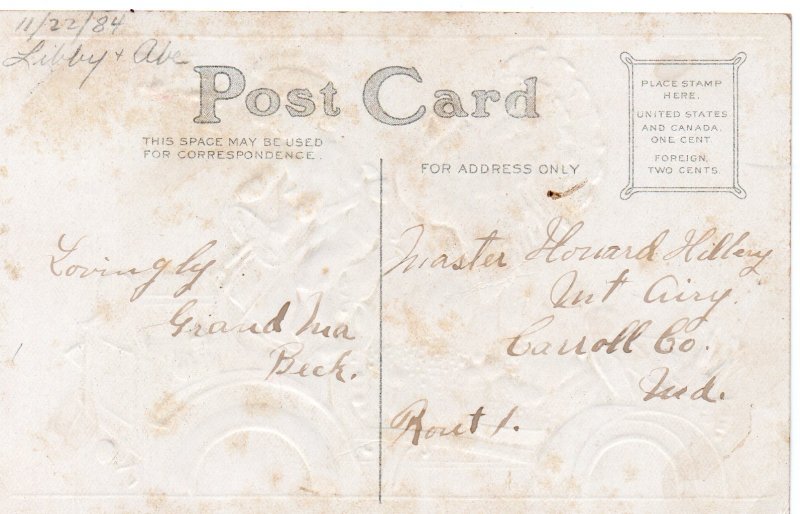 11/22/84
Libby + Abe
Post Card
THIS SPACE MAY BE USED
FOR CORRESPONDENCE.
FOR ADDRESS ONLY
PLACE STAMP
HERE.
UNITED STATES
AND CANADA.
ONE CENT.
FOREIGN,
TWO CENTS
Lovingly
Grand Ma
Beck.
Master Howard Hillery
Mt Airy.
Carroll Co.
Md.
Rout 1.